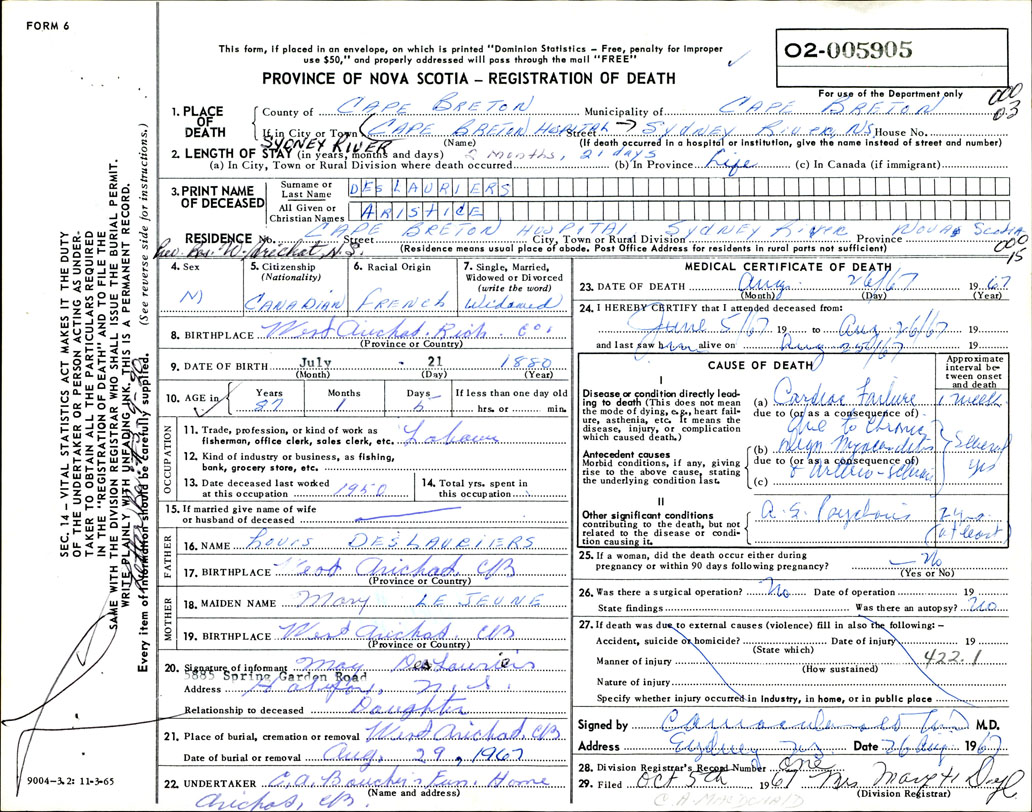 FORM 6
This form, if placed in an envelope, on which is printed "Dominion Statistics – Free, penalty for improper
use $50," and properly addressed will pass through the mail "FREE"
PROVINCE OF NOVA SCOTIA – REGISTRATION OF DEATH
02-005905
For use of the Department only
000
03
1. PLACE OF DEATH
County of CAPE BRETON Municipality of CAPE BRETON
If in City or Town (CAPE BRETON HOSPITAL Street → SYDNEY RIVER, NS House No.
SYDNEY RIVER (Name) (If death occurred in a hospital or institution, give the name instead of street and number)
2. LENGTH OF STAY (in years, months and days) 2 Months, 21 days
(a) In City, Town or Rural Division where death occurred (b) In Province Life (c) In Canada (if immigrant)
3. PRINT NAME OF DECEASED
Surname or Last Name DESLAURIERS
All Given or Christian Names ARISTICE
CAPE BRETON HOSPITAL SYDNEY RIVER NOVA SCOTIA
RESIDENCE No. Street City, Town or Rural Division Province
(Residence means usual place of abode. Post Office Address for residents in rural parts not sufficient)
000
15
W. Arichat, N.S.
4. Sex M
5. Citizenship (Nationality) CANADIAN
6. Racial Origin FRENCH
7. Single, Married, Widowed or Divorced (write the word) Widowed
8. BIRTHPLACE West Arichat, Rich. Co.
(Province or Country)
9. DATE OF BIRTH July - 21 1880
(Month) (Day) (Year)
10. AGE in Years 87 Months 1 Days 5 If less than one day old hrs. or min.
OCCUPATION
11. Trade, profession, or kind of work as
fisherman, office clerk, sales clerk, etc. Labour
12. Kind of industry or business, as fishing,
bank, grocery store, etc.
13. Date deceased last worked
at this occupation 1950
14. Total yrs. spent in
this occupation
15. If married give name of wife
or husband of deceased
FATHER
16. NAME Louis DESLAURIERS
17. BIRTHPLACE West Arichat, CB
(Province or Country)
MOTHER
18. MAIDEN NAME Mary LE JEUNE
19. BIRTHPLACE West Arichat, CB
(Province or Country)
20. Signature of informant May DesLauriers
5885 Spring Garden Road
Address Halifax, N.S.
Relationship to deceased Daughter
21. Place of burial, cremation or removal West Arichat, CB
Date of burial or removal Aug. 29, 1967
22. UNDERTAKER C.A. Boucher Fun. Home
(Name and address)
Arichat, CB.
MEDICAL CERTIFICATE OF DEATH
23. DATE OF DEATH Aug. 26/67 1967
(Month) (Day) (Year)
24. I HEREBY CERTIFY that I attended deceased from:
June 5/67 19 to Aug 26/67 19
and last saw him alive on Aug 25/67 19
CAUSE OF DEATH
Approximate interval between onset and death
I
Disease or condition directly leading to death (This does not mean
the mode of dying, e.g., heart failure, asthenia, etc. It means the
disease, injury, or complication
which caused death.)
(a) Cardiac Failure 1 week
due to (or as a consequence of)
due to Chronic
Antecedent causes
Morbid conditions, if any, giving
rise to the above cause, stating
the underlying condition last.
(b) Myocarditis Several yrs
due to (or as a consequence of)
& Arterio-
(c)
II
Other significant conditions
contributing to the death, but not
related to the disease or condition causing it.
A. S. Psychosis 2 yrs. (at least)
25. If a woman, did the death occur either during
pregnancy or within 90 days following pregnancy? – No
(Yes or No)
26. Was there a surgical operation? No Date of operation 19
State findings Was there an autopsy? No
27. If death was due to external causes (violence) fill in also the following: –
Accident, suicide or homicide? Date of injury 19
(State which)
Manner of injury 422.1
(How sustained)
Nature of injury
Specify whether injury occurred in industry, in home, or in public place
Signed by M.D.
Address Sydney N.S. Date 26 Aug 1967
28. Division Registrar's Record Number One
29. Filed Oct 5th 1967 Mrs. Mary H
(Division Registrar)
C. A. MACDONALD
SEC. 14 – VITAL STATISTICS ACT MAKES IT THE DUTY
OF THE UNDERTAKER OR PERSON ACTING AS UNDERTAKER TO OBTAIN ALL THE PARTICULARS REQUIRED
IN THE "REGISTRATION OF DEATH" AND TO FILE THE
SAME WITH THE DIVISION REGISTRAR WHO SHALL ISSUE THE BURIAL PERMIT.
WRITE PLAINLY WITH UNFADING INK. THIS IS A PERMANENT RECORD.
Every item of information should be carefully supplied. (See reverse side for instructions.)
9004-3.2: 11-3-65